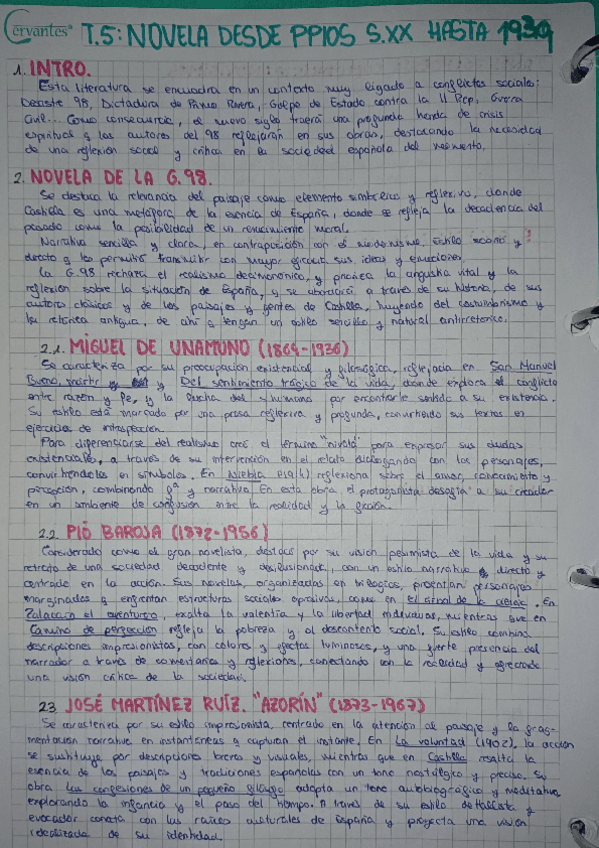 Cervantes®
T.5: NOVELA DESDE PPIOS S.XX HASTA 1939
1. INTRO.
Esta literatura se encuadra en un contexto muy ligado a conflictos sociales:
Desastre 98, Dictadura de Primo Rivera, Golpe de Estado contra la II Rep, Guerra
Civil... Como consecuencia, el nuevo siglo traerá una profunda herida de crisis
espiritual q los autores del 98 reflejarán en sus obras, destacando la necesidad
de una reflexión social y crítica en la sociedad española del momento.
2. NOVELA DE LA G.98.
Se destaca la relevancia del paisaje como elemento simbólico y reflexivo, donde
Castilla es una metáfora de la esencia de España, donde se refleja la decadencia del
pasado como la posibilidad de un renacimiento moral.
Narrativa sencilla y clara, en contraposición con el modernismo. Estilo y
directo q les permitió transmitir con mayor eficacia sus ideas y emociones.
La G.98 rechaza el realismo decimonónico, y practica la angustia vital y la
reflexión sobre la situación de España, q se abordará a través de su historia, de sus
autores clásicos y de los paisajes y gentes de Castilla, huyendo del costumbrismo y
la retórica antigua, de ahí q tengan un estilo sencillo y natural antirretórico.
2.1. MIGUEL DE UNAMUNO (1864-1936)
Se caracteriza por su preocupación existencial y filosófica, reflejada en San Manuel
Bueno, mártir y Del sentimiento trágico de la vida, donde explora el conflicto
entre razón y fe, y la lucha del humano por encontrarle sentido a su existencia.
Su estilo está marcado por una prosa reflexiva y profunda, convirtiendo sus textos en
ejercicios de introspección.
Para diferenciarse del realismo creó el término "nivola" para expresar sus dudas
existenciales, a través de su intervención en el relato dialogando con los personajes,
convirtiéndolos en símbolos. En Niebla (1914) reflexiona sobre el amor, conocimiento y
percepción, combinando fª y narrativa. En esta obra el protagonista desafía a su creador
en un ambiente de confusión entre la realidad y la ficción.
2.2. PÍO BAROJA (1872-1956)
Considerado como el gran novelista, destaca por su visión pesimista de la vida y su
retrato de una sociedad decadente y desilusionada, con un estilo narrativo directo y
centrado en la acción. Sus novelas, organizadas en trilogías, presentan personajes
marginados q enfrentan estructuras sociales opresivas, como en El árbol de la ciencia. En
Zalacaín el aventurero, exalta la valentía y la libertad individuales, mientras que en
Camino de perfección refleja la pobreza y el descontento social. Su estilo combina
descripciones impresionistas, con colores y efectos luminosos, y una fuerte presencia del
narrador a través de comentarios y reflexiones, conectando con la realidad y ofreciendo
una visión crítica de la sociedad.
2.3 JOSÉ MARTÍNEZ RUÍZ. "AZORÍN" (1873-1967)
Se caracteriza por su estilo impresionista, centrado en la atención al paisaje y la frag-
mentación narrativa en instantáneas q capturan el instante. En La voluntad (1902), la acción
se sustituye por descripciones breves y visuales, mientras que en Castilla resalta la
esencia de los paisajes y tradiciones españolas con un tono nostálgico y preciso. Su
obra Las confesiones de un pequeño filósofo adopta un tono autobiográfico y meditativo
explorando la infancia y el paso del tiempo. A través de su estilo detallista y
evocador conecta con las raíces culturales de España y proyecta una visión
idealizada de su identidad.